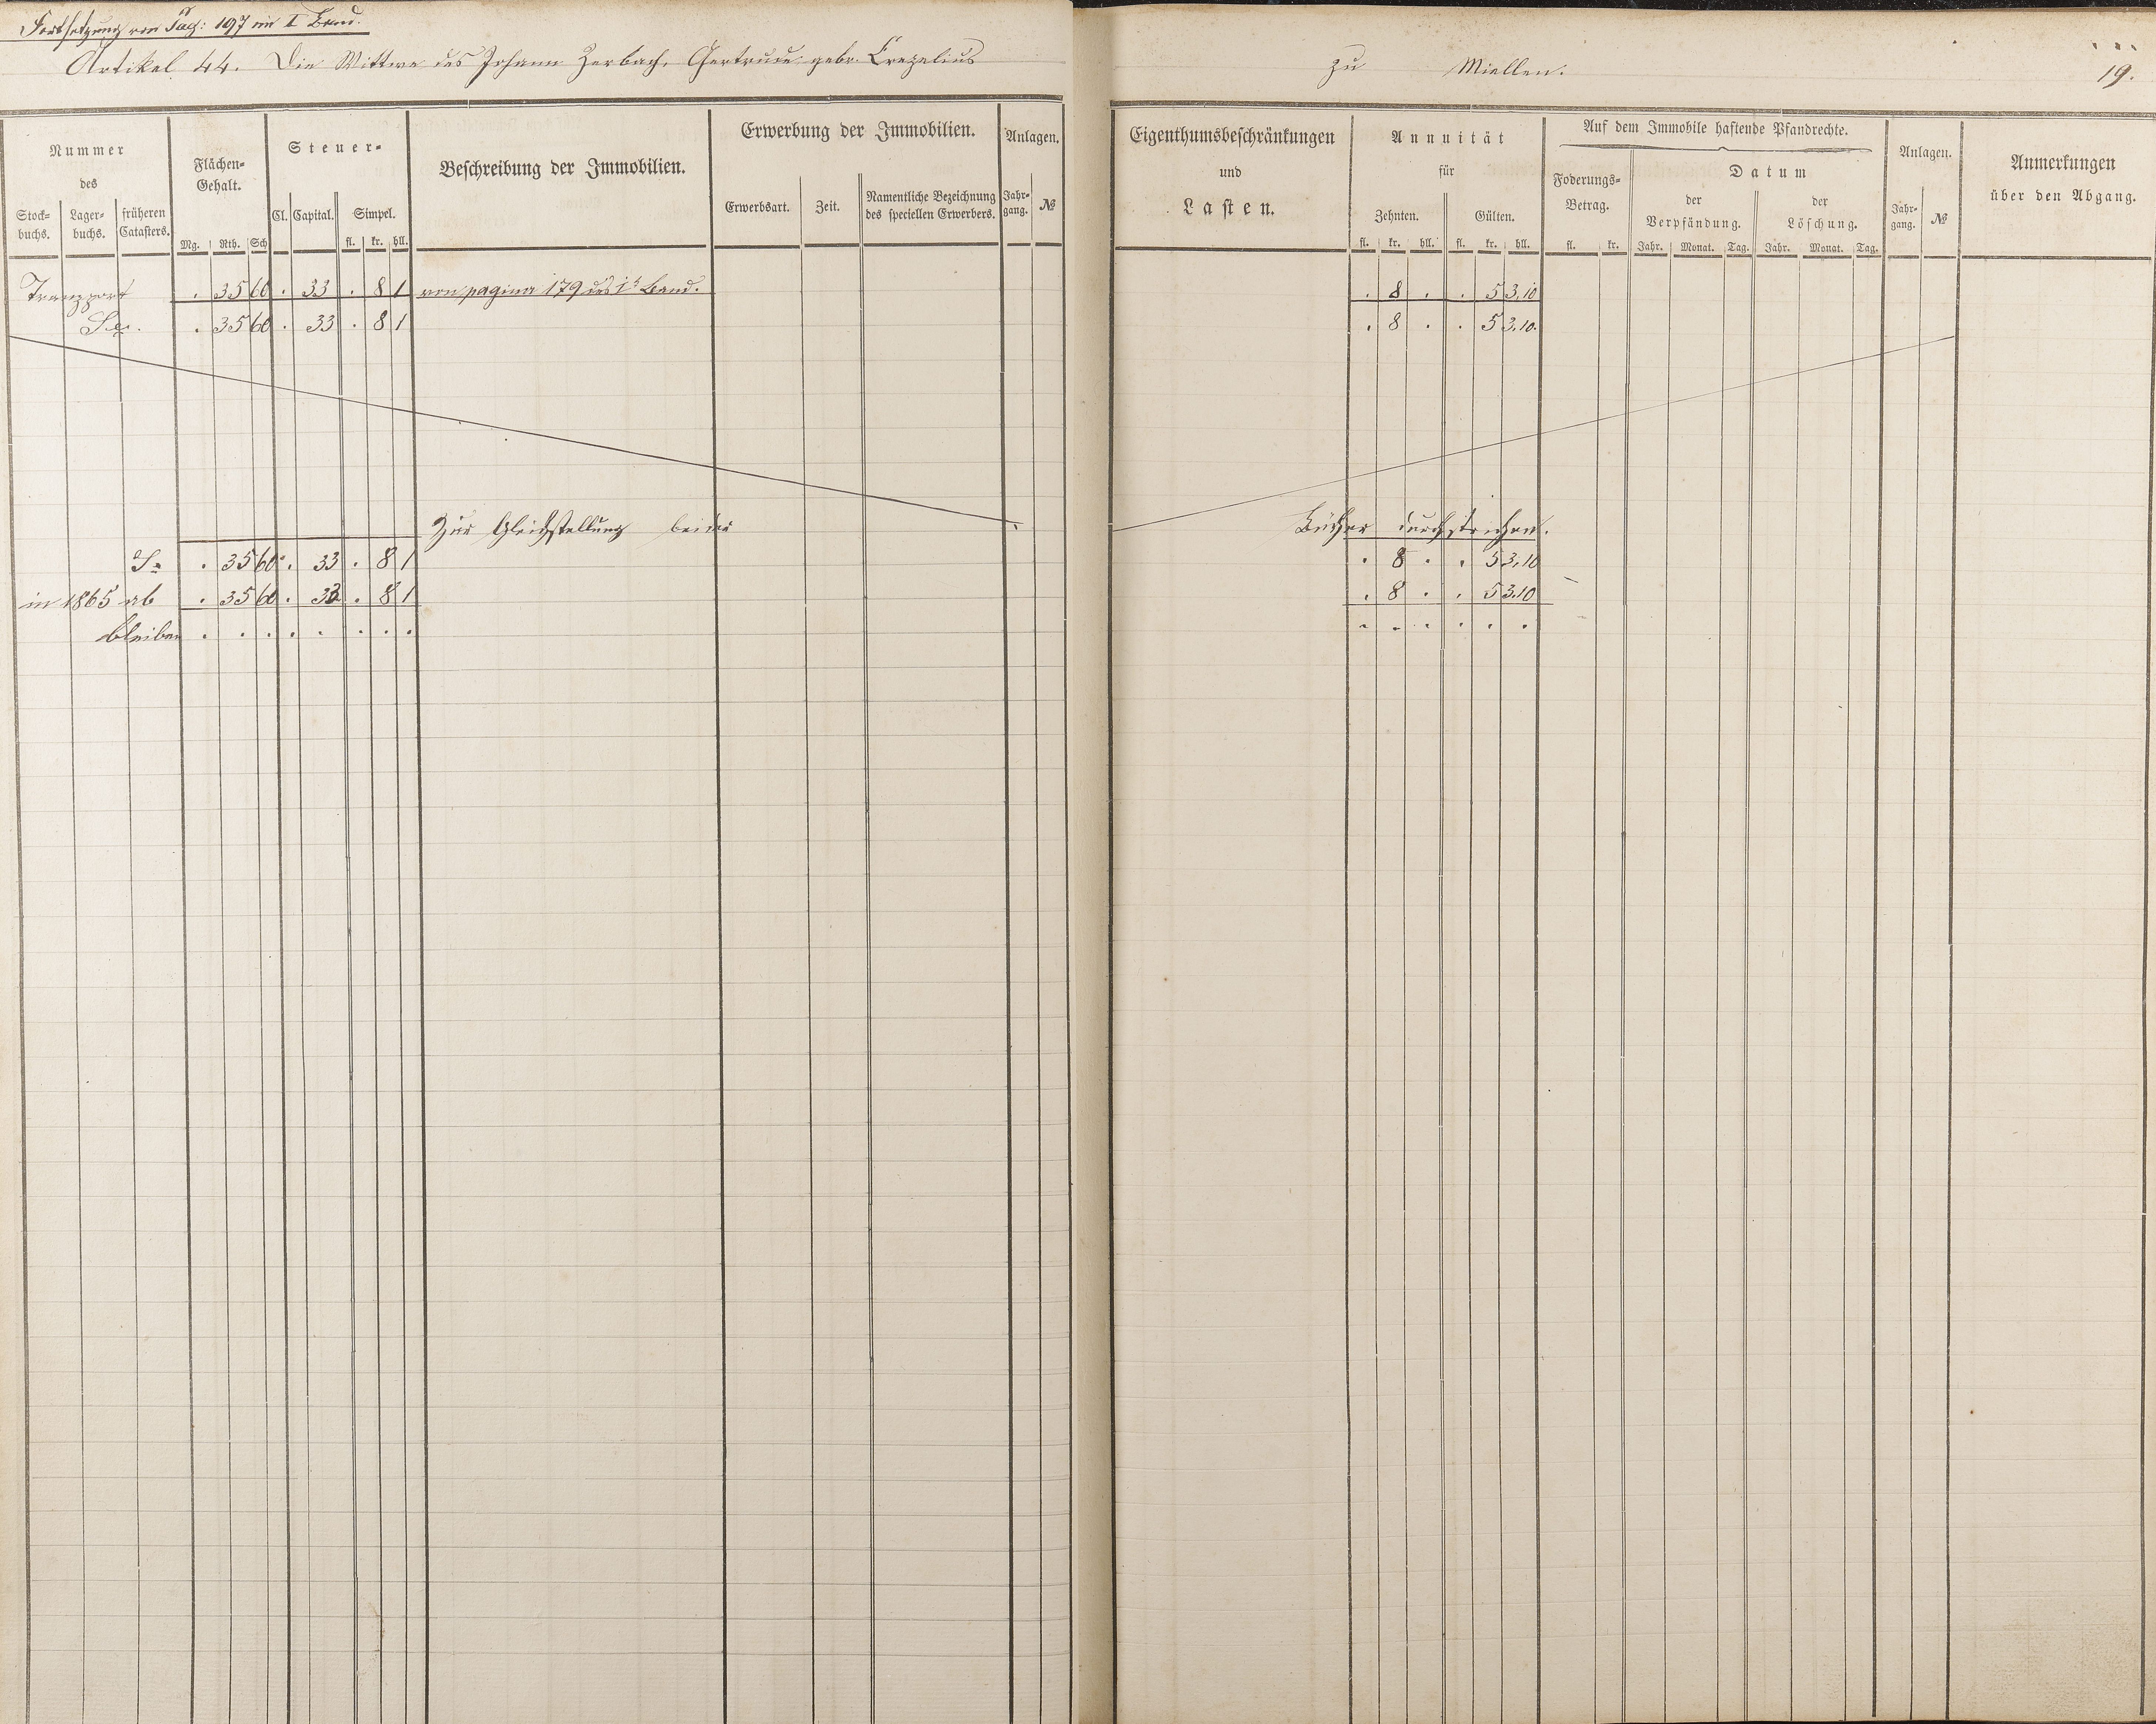 Fortsetzung von Pag: 197 im I Band.
Artikel 44. Die Wittwe des Johann Zerbach, Gertrude gebr. Crezelius zu Miellen. 19.
Nummer
des
Stock-
buchs.
Lager-
buchs.
früheren
Catasters.
Flächen-
Gehalt.
Mg. Rth. Sch
Steuer-
Cl. Capital. Simpel.
fl. kr. hll.
Beschreibung der Immobilien.
Erwerbung der Immobilien.
Erwerbsart. Zeit. Namentliche Bezeichnung
des speciellen Erwerbers.
Anlagen.
Jahr-
gang. №
Eigenthumsbeschränkungen
und
Lasten.
Annuität
für
Zehnten. Gülten.
fl. kr. hll. fl. kr. hll.
Auf dem Immobile haftende Pfandrechte.
Foderungs-
Betrag.
fl. kr.
Datum
der
Verpfändung.
Jahr. Monat. Tag.
der
Löschung.
Jahr. Monat. Tag.
Anlagen.
Jahr-
gang. №
Anmerkungen
über den Abgang.
Transport . 35 60 . 33 . 8 1 von pagina 179 des 1t Band. . 8 . . 5 3.10
Sa. . 35 60 . 33 . 8 1 . 8 . . 5 3.10.
Zur Gleichstellung beider Bücher durchstrichen.
Sa . 35 60 . 33 . 8 1 . 8 . . 5 3.10
in 1865 ab . 35 60 . 33 . 8 1 . 8 . . 5 3.10
bleiben . . . . . . . . . . . . . .